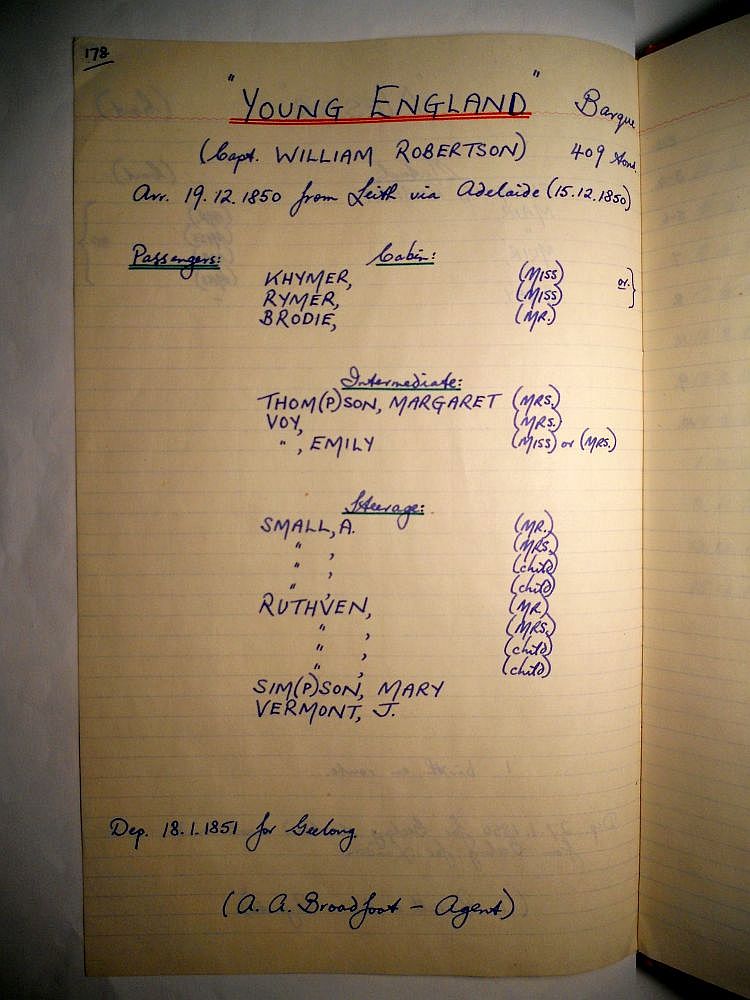 178
"YOUNG ENGLAND" Barque
(Capt. WILLIAM ROBERTSON) 409 tons.
Arr. 19.12.1850 from Leith via Adelaide (15.12.1850)
Passengers: Cabin:
KHYMER, (MISS) or }
RYMER, (MISS)
BRODIE, (MR.)
Intermediate:
THOM(P)SON, MARGARET (MRS.)
VOY, (MRS.)
" , EMILY (MISS) or (MRS.)
Steerage:
SMALL, A. (MR.)
" , (MRS.)
" , (child)
" , (child)
RUTHVEN, (MR.)
" , (MRS.)
" , (child)
" , (child)
SIM(P)SON, MARY
VERMONT, J.
Dep. 18.1.1851 for Geelong.
(A. A. Broadfoot – Agent)